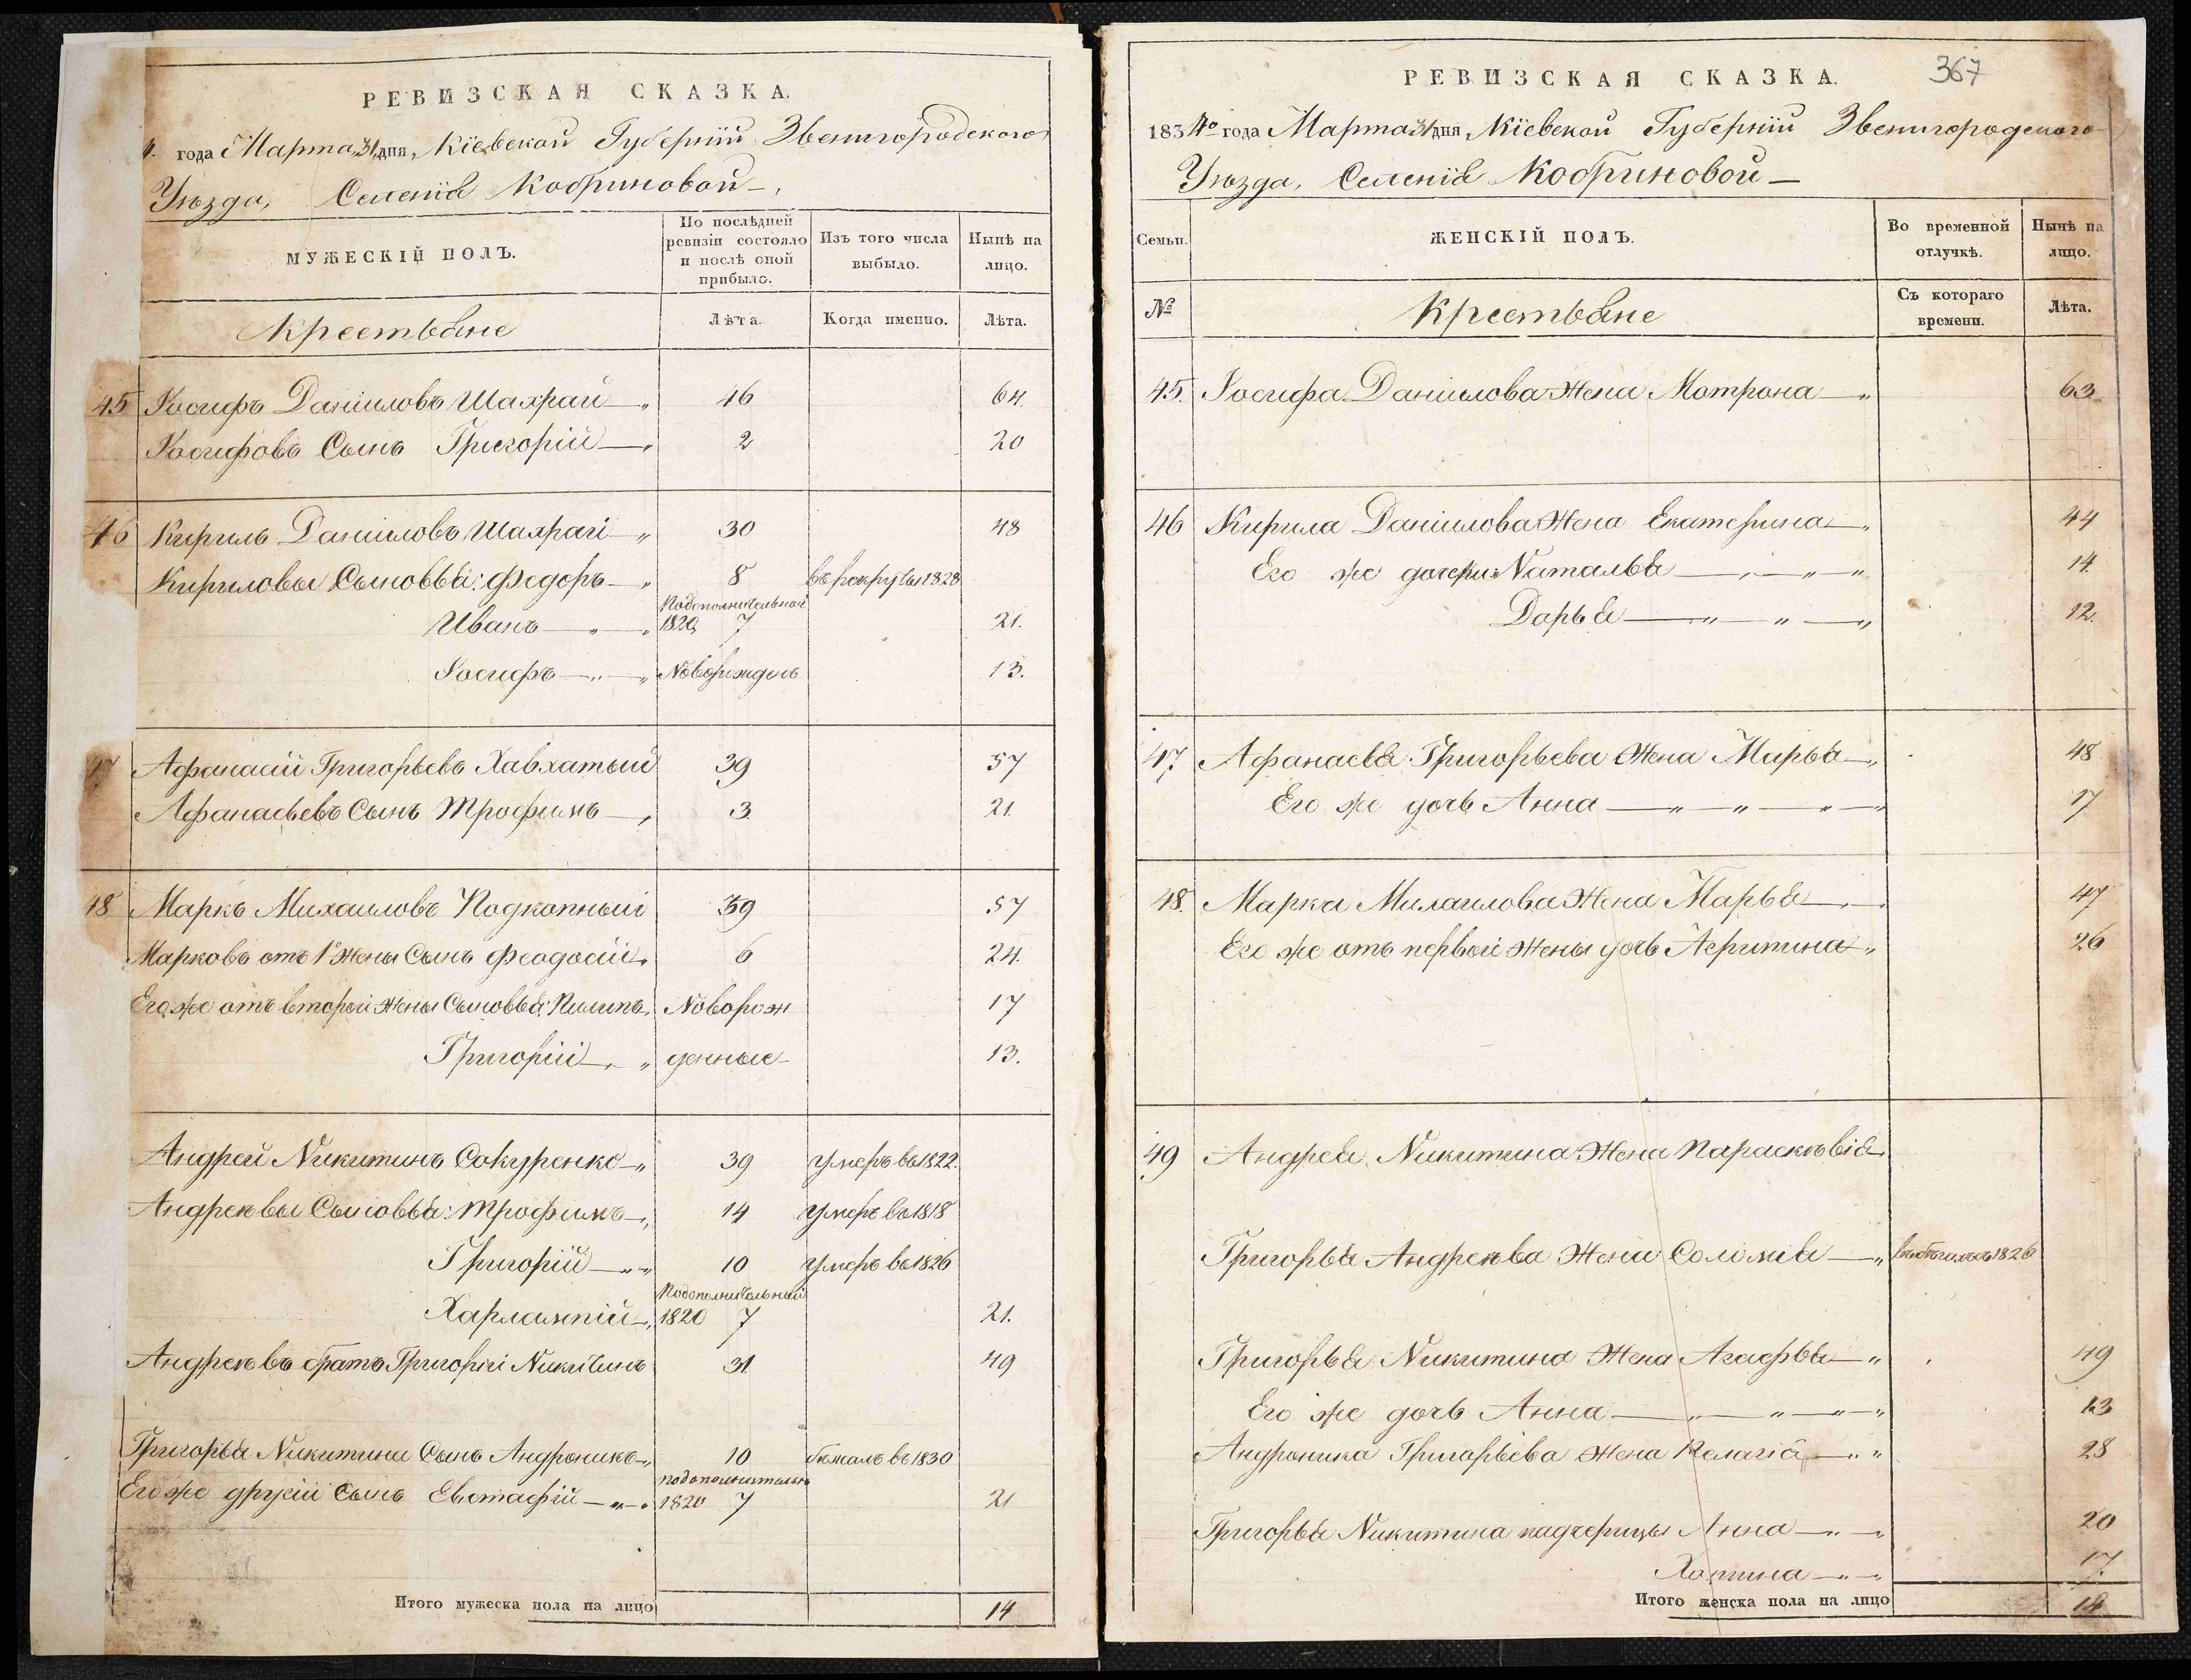 РЕВИЗСКАЯ СКАЗКА.
4. года Марта 31 дня, Кіевской Губерніи Звенигородскаго
Уѣзда, Селенія Кобриновой
МУЖЕСКІЙ ПОЛЪ.
По послѣдней ревизіи состояло и послѣ оной прибыло.
Изъ того числа выбыло.
Нынѣ на лицо.
Крестьяне
Лѣта.
Когда именно.
Лѣта.
45 Іосифъ Даніиловъ Шахрай 46 64.
Іосифовъ Сынъ Григорій 2 20
46 Кирилъ Даніиловъ Шахрай 30 48
Кириловы Сыновья: Федоръ 8 въ рекруты 1828
Подополнительной
Иванъ 1820 7 21.
Іосифъ Новорожденъ 13.
47 Афанасій Григорьевъ Хавхатый 39 57
Афанасьевъ Сынъ Трофимъ 3 21
48 Маркъ Михаиловъ Подкопный 39 57
Марковъ отъ 1й Жены Сынъ Феодосій 6 24.
Его же отъ второй Жены Сыновья: Пилипъ Новорож 17
Григорій денные 13.
Андрей Никитинъ Сокуренко 39 Умеръ въ 1822.
Андреѣвы Сыновья: Трофимъ 14 Умеръ въ 1818
Григорій 10 Умеръ въ 1826
Подополнительный
Харлампій 1820 7 21.
Андреѣвъ братъ Григорій Никитинъ 31 49
Григорья Никитина Сынъ Андроникъ 10 бѣжалъ въ 1830
подополнительн
Его же другій Сынъ Евстафій 1820 7 21
Итого мужеска пола на лицо 14
367
РЕВИЗСКАЯ СКАЗКА.
1834го года Марта 31 дня, Кіевской Губерніи Звенигородскаго
Уѣзда, Селенія Кобриновой
Семьи.
ЖЕНСКІЙ ПОЛЪ.
Во временной отлучкѣ.
Нынѣ на лицо.
№
Крестьяне
Съ котораго времени.
Лѣта.
45. Іосифа Даніилова Жена Мотрона 63
46 Кирила Даніилова Жена Екатерина 44
Его же дочери: Наталья 14.
Дарья 12.
47 Афанасья Григорьева Жена Марья 48
Его же дочь Анна 17
48. Марка Михаилова Жена Марья 47
Его же отъ первой Жены дочь 26
49 Андрея Никитина Жена Параскѣвія
Григорья Андреѣва Жена Соломія въ бѣгахъ съ 1826
Григорья Никитина Жена Агафья 49
Его же дочь Анна 13
Андроника Григорьева Жена Пелагія 28
Григорья Никитина падчерицы Анна 20
17.
Итого женска пола на лицо 14